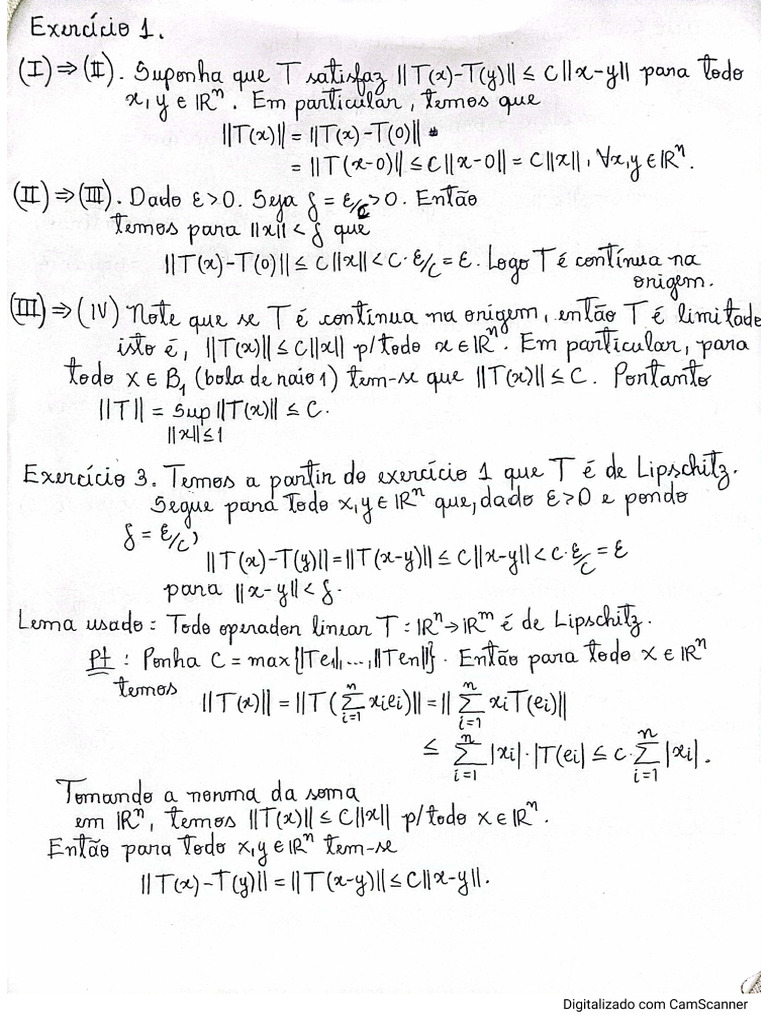 Exercício 1.
(I) ⇒ (II). Suponha que T satisfaz ||T(x)-T(y)|| ≤ C||x-y|| para todo
x, y ∈ ℝⁿ. Em particular, temos que
||T(x)|| = ||T(x)-T(0)||
= ||T(x-0)|| ≤ C||x-0|| = C||x||, ∀x,y ∈ ℝⁿ.
(II) ⇒ (III). Dado ε>0. Seja δ = ε/c >0. Então
temos para ||x|| < δ que
||T(x)-T(0)|| ≤ C||x|| < C·ε/c = ε. Logo T é contínua na
origem.
(III) ⇒ (IV) Note que se T é contínua na origem, então T é limitada
isto é, ||T(x)|| ≤ C||x|| p/ todo x ∈ ℝⁿ. Em particular, para
todo x ∈ B₁ (bola de raio 1) tem-se que ||T(x)|| ≤ C. Portanto
||T|| = sup ||T(x)|| ≤ C.
||x|| ≤ 1
Exercício 3. Temos a partir do exercício 1 que T é de Lipschitz.
Segue para todo x, y ∈ ℝⁿ que, dado ε>0 e pondo
δ = ε/c,
||T(x)-T(y)|| = ||T(x-y)|| ≤ C||x-y|| < C·ε/c = ε
para ||x-y|| < δ.
Lema usado: Todo operador linear T: ℝⁿ → ℝᵐ é de Lipschitz.
Pf: Ponha C = max{||Te₁|,...,||Ten||}. Então para todo x ∈ ℝⁿ
temos
||T(x)|| = ||T(∑ᵢ₌₁ⁿ xᵢeᵢ)|| = ||∑ᵢ₌₁ⁿ xᵢT(eᵢ)||
≤ ∑ᵢ₌₁ⁿ |xᵢ|·|T(eᵢ| ≤ C·∑ᵢ₌₁ⁿ |xᵢ|.
Tomando a norma da soma
em ℝⁿ, temos ||T(x)|| ≤ C||x|| p/ todo x ∈ ℝⁿ.
Então para todo x, y ∈ ℝⁿ tem-se
||T(x)-T(y)|| = ||T(x-y)|| ≤ C||x-y||.
Digitalizado com CamScanner